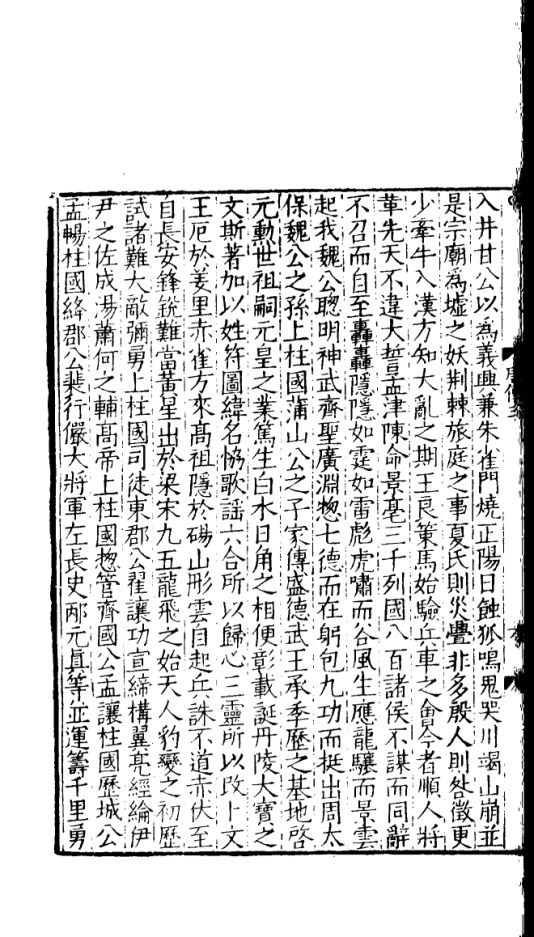 入井甘公以為義興兼朱雀門燒正陽日蝕狐鳴鬼哭川竭山崩並
是宗廟為墟之妖荆棘旅庭之事夏氏則災舋非多殷人則咎徵更
少牽牛入漢方知大亂之期王良策馬始驗兵車之會今者順人將
革先天不違大誓孟津陳命景亳三千列國八百諸侯不謀而同辭
不召而自至轟轟隱隱如霆如雷彪虎嘯而谷風生應龍驤而景雲
起我魏公聦明神武齊聖廣淵惣七德而在躬包九功而挺出周太
保魏公之孫上柱國蒲山公之子家傳盛德武王承季歷之基地啓
元勲世祖嗣元皇之業篤生白水日角之相便彰載誕丹陵大寶之
文斯著加以姓符圖緯名恊歌謡六合所以歸心三靈所以改卜文
王厄於羑里赤雀方來髙祖隱於碭山彤雲自起兵誅不道赤伏至
自長安鋒銳難當黃星出於梁宋九五龍飛之始天人豹變之初歷
試諸難大敵彌勇上柱國司徒東郡公翟讓功宣締構翼亮經綸伊
尹之佐成湯蕭何之輔髙帝上柱國惣管齊國公孟讓柱國歷城公
孟暢柱國絳郡公裴行儼大將軍左長史邴元眞等並運籌千里勇